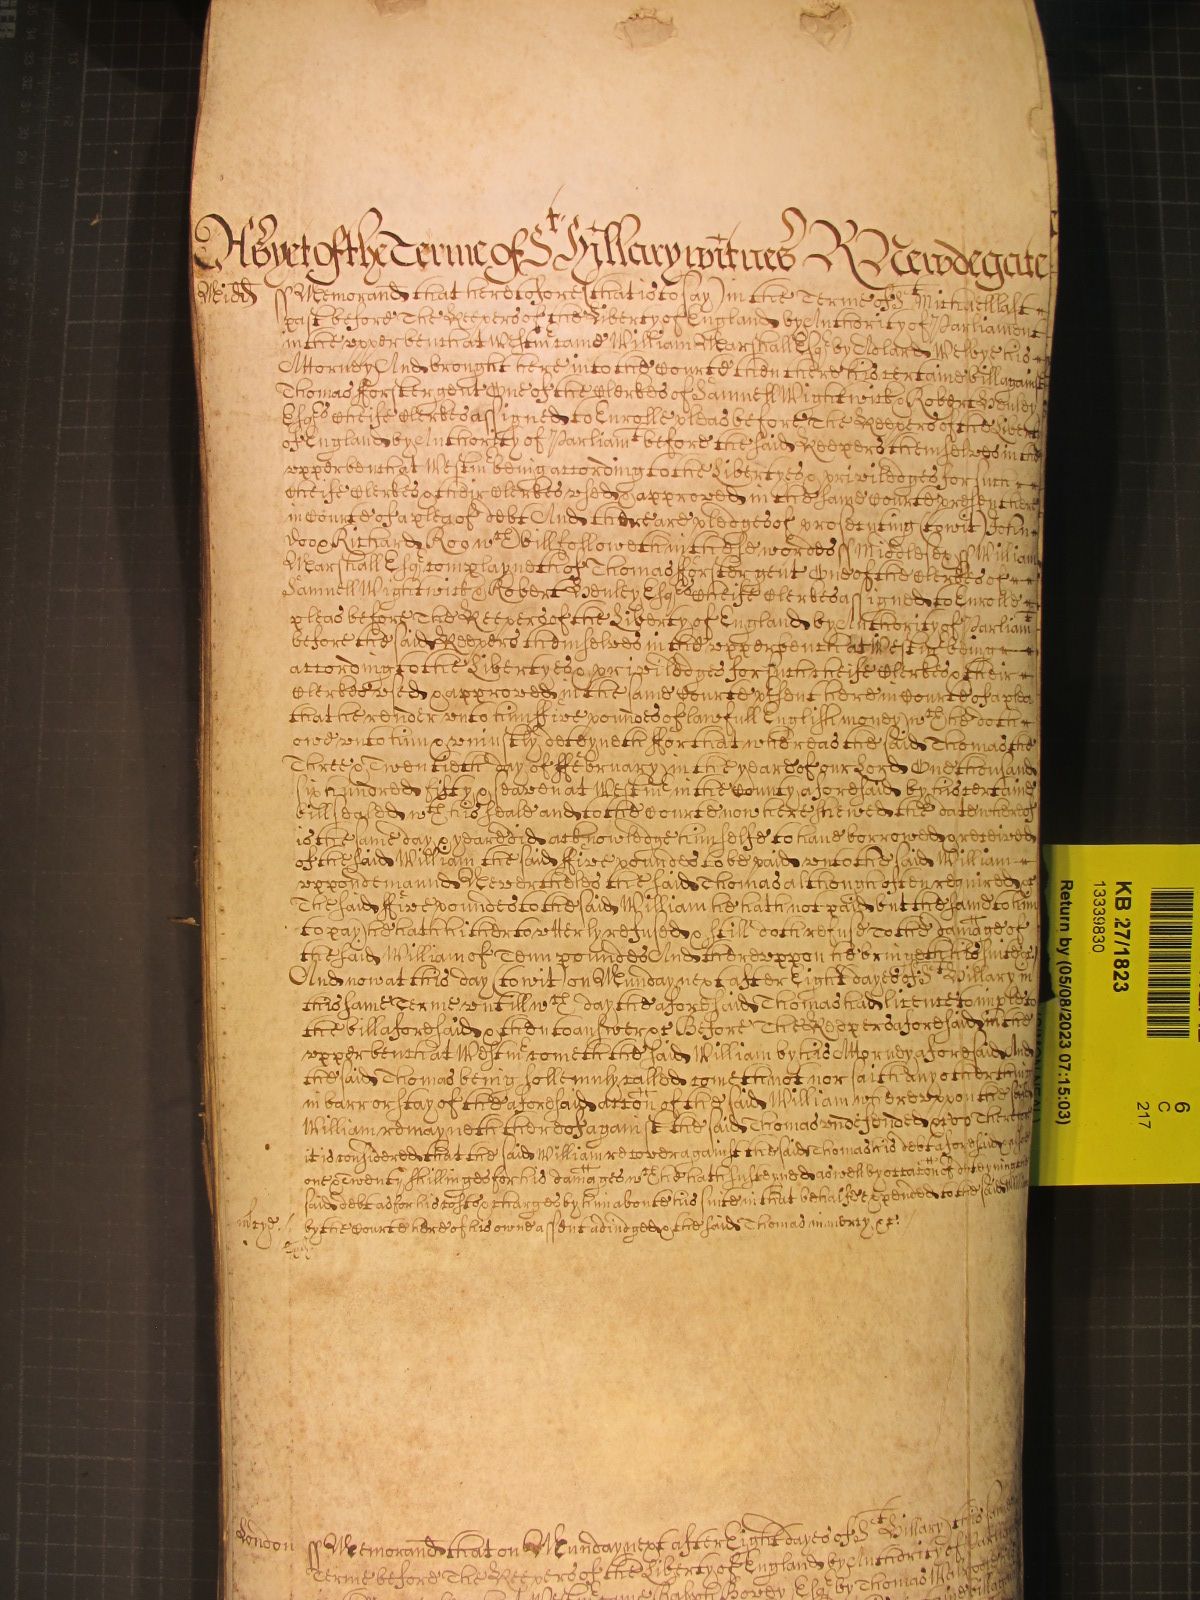 As yet of the Terme of St Hillary witnes R Newdegate
Midds ss Memorand that heretofore (that is to say) in the Terme of St Michaell last
past before The Keepers of the Liberty of England by Authority of Parliament
in the upper bench at Westmr came William Marshall Esqr by Wesbye his
Attorney And brought here into the Courte then there his certaine bill against
Thomas fforster gent One of the Clerkes of Samuell Wightwick & Robert Henley
Esqrs Cheife Clerkes assigned to Enrolle pleas before The Keepers of the Liberty
of England by Authority of Parliamt before the said Keepers themselves in the
upper bench at Westmr being according to the Libertyes & priviledges for such
Cheife Clerkes & their Clerkes used & approved in the same Courte present here
in Courte of a plea of debt And there are pledges of prosecuting (to wit) John
Doo & Richard Roo wch bill followeth in these wordes ss Middlesex ss William
Marshall Esqr complayneth of Thomas fforster gent One of the Clerkes of
Samuell Wightwick & Robert Henley Esqrs Cheife Clerkes assigned to Enrolle
pleas before The Keepers of the Liberty of England by Authority of Parliamt
before the said Keepers themselves in the upper bench at Westmr being
according to the Libertyes & priviledges for such Cheife Clerkes & their
Clerkes used & approved in the same Courte present here in Courte of a plea
that he render unto him ffive poundes of lawfull English money wch he doth
owe unto him & uniustly deteyneth ffor that whereas the said Thomas the
Three & Twentieth day of ffebruary in the yeare of our Lord One thousand
six hundred fifty & seaven at Westmr in the County aforesaid by his certaine
bill sealed wth his seale and to the Courte now here shewed the date whereof
is the same day & yeare did acknowledge himselfe to have borrowed & received
of the said William the said ffive poundes to be paid unto the said William
uppon demaund Neverthelesse the said Thomas although often required &c
The said ffive poundes to the said William he hath not paid but the same to him
to pay he hath hitherto utterly refused & still doth refuse To the damage of
the said William of Tenn poundes And thereuppon he bringeth his suite &c
And now at this day (to wit) on Munday next after Eight dayes of St Hillary in
this same Terme untill wch day the aforesaid Thomas had licence to imparle to
the bill aforesaid & then to answer &c Before The Keepers aforesaid in the
upper bench at Westmr cometh the said William by his Attorney aforesaid And
the said Thomas being sollemnly called cometh not nor saith any other thing
in barr or stay of the aforesaid accon of the said William whereuppon the said
William remayneth thereof against the said Thomas undefended &c Therefore
it is considered that the said William recover against the said Thomas his debt aforesaid & alsoe
one & Twenty shillinges for his damages wch he hath susteyned as well by occasion of deteyning the
said debt as for his costs & charges by him aboute his suite in that behalfe expended to the said William
by the Courte here of his owne assent adiudged & the said Thomas in mercy &c
mercye
London ss Memorand that on Munday next after Eight dayes of St Hillary this same
Terme before The Keepers of the Liberty of England by Authority of Parliament
by Thomas
KB 27/1823
13339830
Return by (05/08/2023 07:15:03)
6
C
217